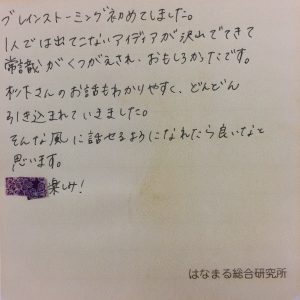 ブレインストーミング初めてしました。
1人では出てこないアイディアが沢山でてきて
常識がくつがえされ、おもしろかったです。
さんのお話もわかりやすく、どんどん
引き込まれていきました。
そんな風に話せるようになれたら良いなと
思います。
楽しみ!
はなまる総合研究所